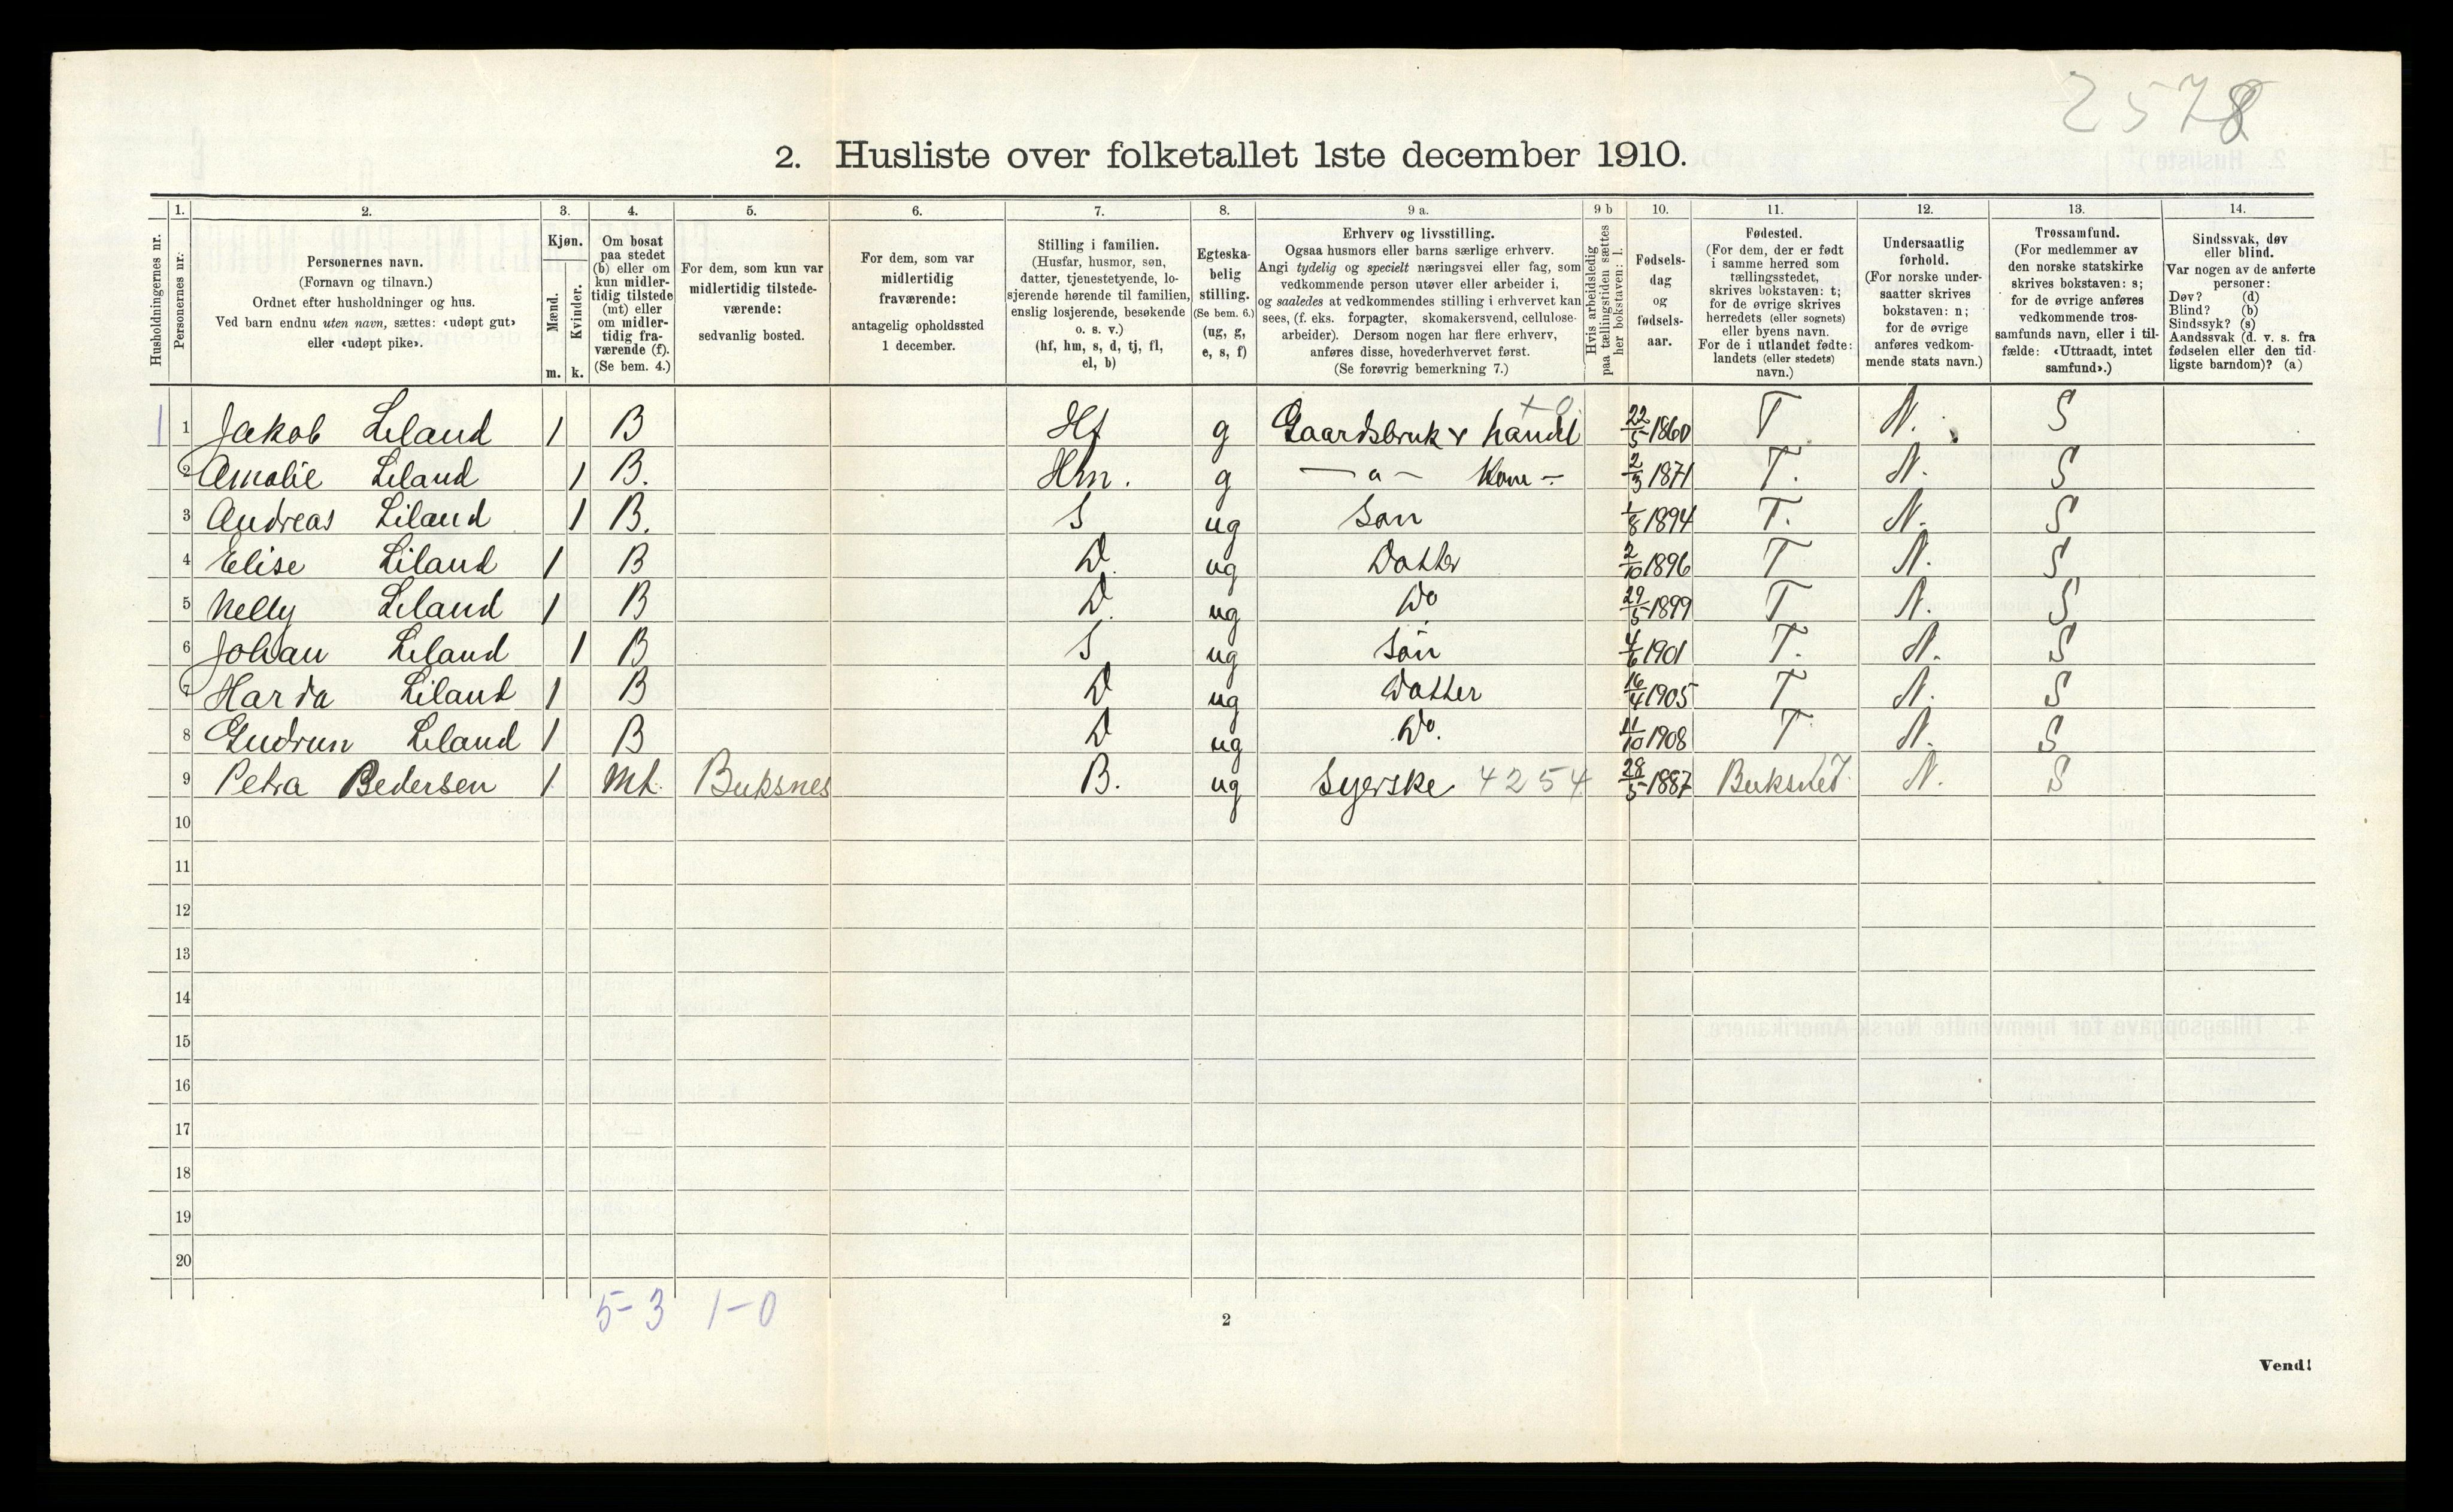 2578
2. Husliste over folketallet 1ste december 1910.
Husholdningernes nr.
1. Personernes nr.
2. Personernes navn.
(Fornavn og tilnavn.)
Ordnet efter husholdninger og hus.
Ved barn endnu uten navn, sættes: «udøpt gut»
eller «udøpt pike».
3. Kjøn.
Mænd. Kvinder.
m. k.
4. Om bosat
paa stedet
(b) eller om
kun midler-
tidig tilstede
(mt) eller
om midler-
tidig fra-
værende (f).
(Se bem. 4.)
5. For dem, som kun var
midlertidig tilstede-
værende:
sedvanlig bosted.
6. For dem, som var
midlertidig
fraværende:
antagelig opholdssted
1 december.
7. Stilling i familien.
(Husfar, husmor, søn,
datter, tjenestetyende, lo-
sjerende hørende til familien,
enslig losjerende, besøkende
o. s. v.)
(hf, hm, s, d, tj, fl,
el, b)
8. Egteska-
belig
stilling.
(Se bem. 6.)
(ug, g,
e, s, f)
9 a. Erhverv og livsstilling.
Ogsaa husmors eller barns særlige erhverv.
Angi tydelig og specielt næringsvei eller fag, som
vedkommende person utøver eller arbeider i,
og saaledes at vedkommendes stilling i erhvervet kan
sees, (f. eks. forpagter, skomakersvend, cellulose-
arbeider). Dersom nogen har flere erhverv,
anføres disse, hovederhvervet først.
(Se forøvrig bemerkning 7.)
9 b Hvis arbeidsledig
paa tællingstiden sættes
her bokstaven: l.
10. Fødsels-
dag
og
fødsels-
aar.
11. Fødested.
(For dem, der er født
i samme herred som
tællingsstedet,
skrives bokstaven: t;
for de øvrige skrives
herredets (eller sognets)
eller byens navn.
For de i utlandet fødte:
landets (eller stedets)
navn.)
12. Undersaatlig
forhold.
(For norske under-
saatter skrives
bokstaven: n;
for de øvrige
anføres vedkom-
mende stats navn.)
13. Trossamfund.
(For medlemmer av
den norske statskirke
skrives bokstaven: s;
for de øvrige anføres
vedkommende tros-
samfunds navn, eller i til-
fælde: «Uttraadt, intet
samfund».)
14. Sindssvak, døv
eller blind.
Var nogen av de anførte
personer:
Døv? (d)
Blind? (b)
Sindssyk? (s)
Aandssvak (d. v. s. fra
fødselen eller den tid-
ligste barndom)? (a)
+ 0
1 1 Jakob Liland 1 B Hf g Gaardsbruk & handel 22/5 1860 T N. S
2 Amalie Liland 1 B. Hm. g — a — Kone — 2/3 1871 T. N. S
3 Andreas Liland 1 B. S ug Søn 1/8 1894 T. N. S
4 Elise Liland 1 B D. ug Datter 2/10 1896 T N. S
5 Nelly Liland 1 B D. ug Do 29/5 1899 T N. S
6 Johan Liland 1 B S ug Søn 4/6 1901 T. N. S
7 Harda Liland 1 B D ug Datter 16/4 1905 T N. S
8 Gudrun Liland 1 B D ug Do. 11/10 1908 T N. S
9 Petra Pedersen 1 Mt. Buksnes B. ug Syerske 4254 28/5 1887 Buksnes N. S
10
11
12
13
14
15
16
17
18
19
20
5-3 1-0
2
Vend!